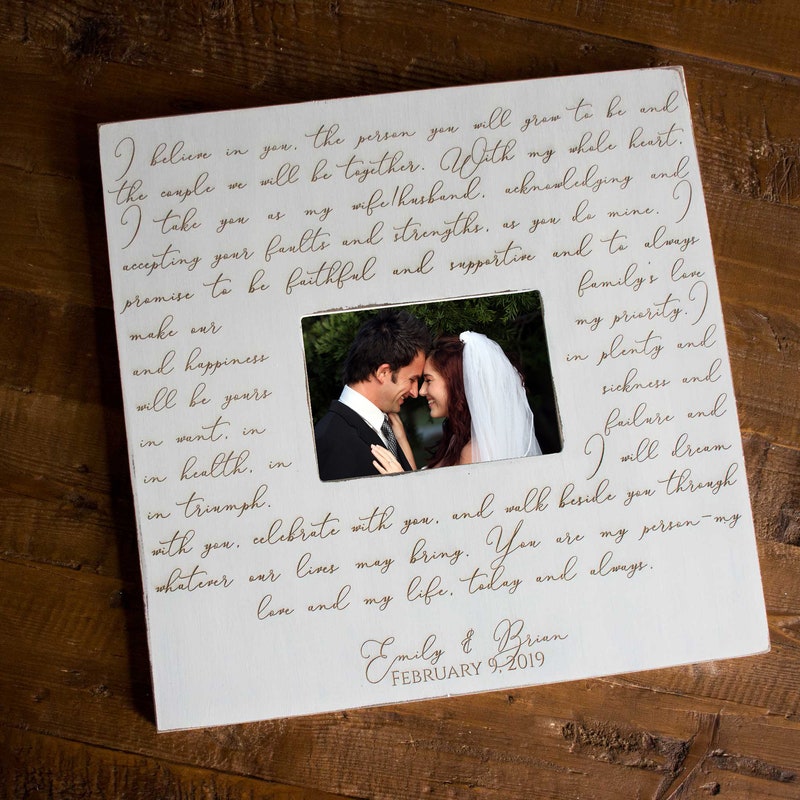 I believe in you, the person you will grow to be and
the couple we will be together. With my whole heart,
I take you as my wife/husband, acknowledging and
accepting your faults and strengths, as you do mine. I
promise to be faithful and supportive and to always
make our family's love
and happiness my priority. I
will be yours in plenty and
in want, in sickness and
in health, in failure and
in triumph. I will dream
with you, celebrate with you, and walk beside you through
whatever our lives may bring. You are my person–my
love and my life, today and always.
Emily & Brian
February 9, 2019